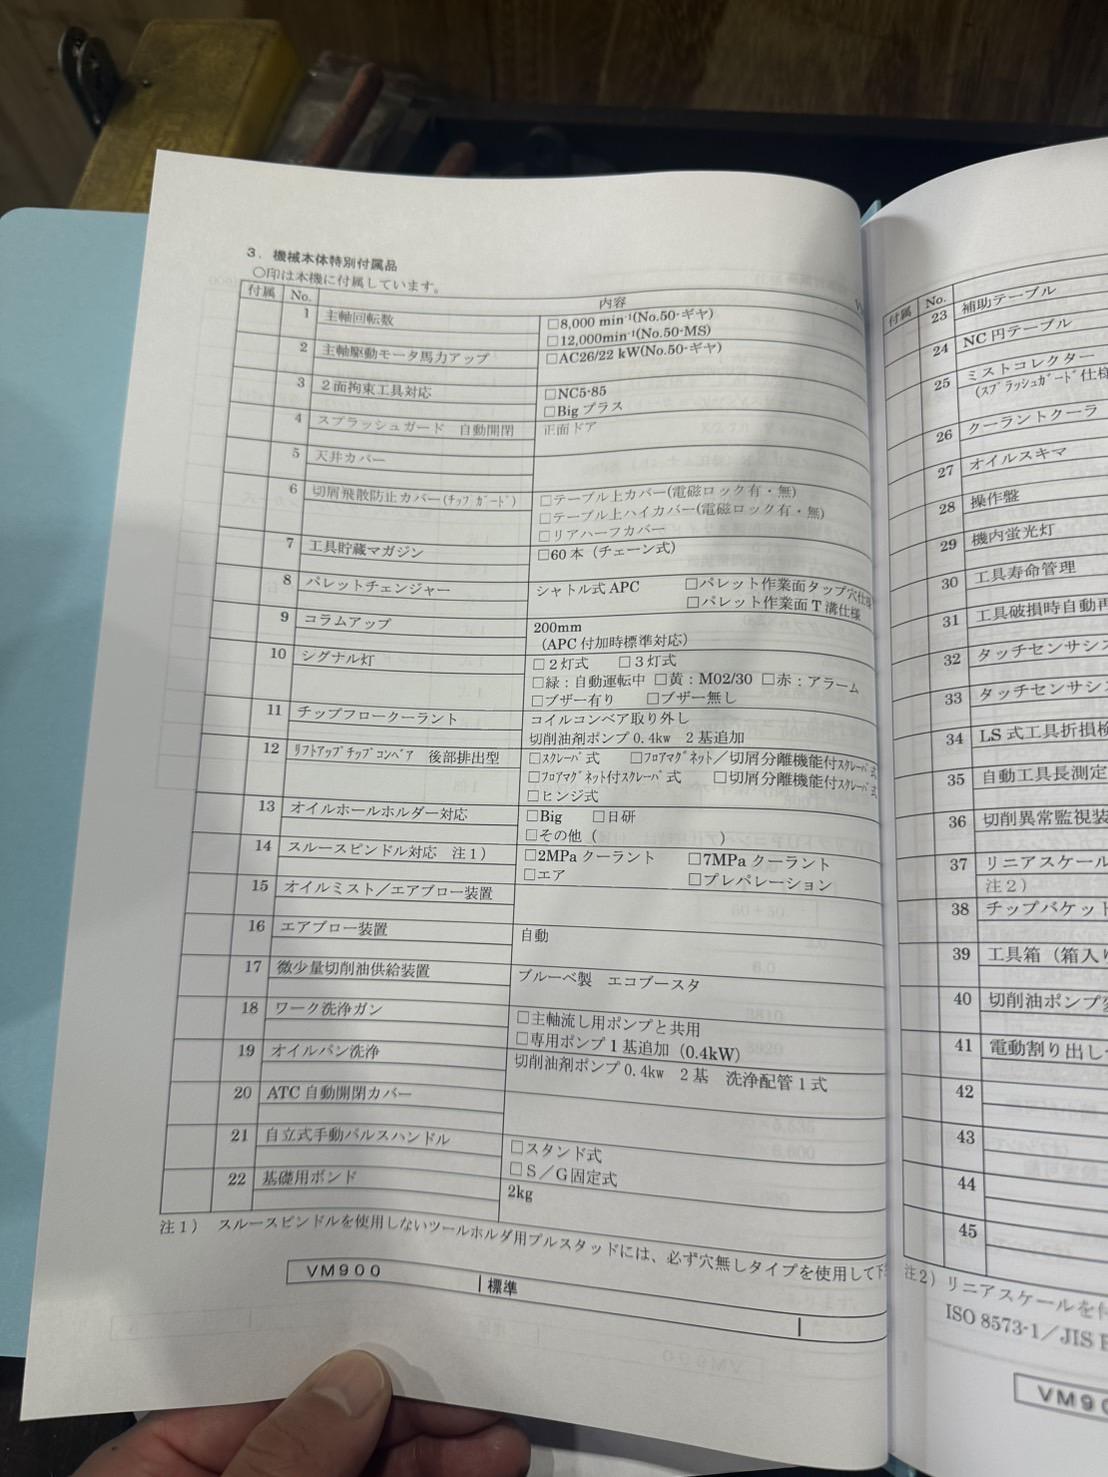 3. 機械本体特別付属品
〇印は本機に付属しています。
付属 No. 内容
1 主軸回転数 □8,000 min⁻¹(No.50-ギヤ)
□12,000min⁻¹(No.50-MS)
2 主軸駆動モータ馬力アップ □AC26/22 kW(No.50-ギヤ)
3 2面拘束工具対応 □NC5-85
□Big プラス
4 スプラッシュガード 自動開閉 正面ドア
5 天井カバー
6 切屑飛散防止カバー(チップガード) □テーブル上カバー(電磁ロック有・無)
□テーブル上ハイカバー(電磁ロック有・無)
□リアハーフカバー
7 工具貯蔵マガジン □60本(チェーン式)
8 パレットチェンジャー シャトル式 APC □パレット作業面タップ穴仕様
□パレット作業面T溝仕様
9 コラムアップ 200mm
(APC 付加時標準対応)
10 シグナル灯 □2灯式 □3灯式
□緑:自動運転中 □黄:M02/30 □赤:アラーム
□ブザー有り □ブザー無し
11 チップフロークーラント コイルコンベア取り外し
切削油剤ポンプ 0.4kw 2基追加
12 リフトアップチップコンベア 後部排出型 □スクレーパ式 □フロアマグネット/切屑分離機能付スクレーパ式
□フロアマグネット付スクレーパ式 □切屑分離機能付スクレーパ式
□ヒンジ式
13 オイルホールホルダー対応 □Big □日研
□その他( )
14 スルースピンドル対応 注1) □2MPa クーラント □7MPa クーラント
□エア □プレパレーション
15 オイルミスト/エアブロー装置
16 エアブロー装置 自動
17 微少量切削油供給装置 ブルーベ製 エコブースタ
18 ワーク洗浄ガン □主軸流し用ポンプと共用
□専用ポンプ1基追加(0.4kW)
19 オイルパン洗浄 切削油剤ポンプ 0.4kw 2基 洗浄配管1式
20 ATC 自動開閉カバー
21 自立式手動パルスハンドル □スタンド式
□S/G固定式
22 基礎用ボンド 2kg
注1) スルースピンドルを使用しないツールホルダ用プルスタッドには、必ず穴無しタイプを使用して下
VM900 標準
付属 No.
23 補助テーブル
24 NC 円テーブル
25 ミストコレクター
(スプラッシュガード仕様
26 クーラントクーラ
27 オイルスキマ
28 操作盤
29 機内蛍光灯
30 工具寿命管理
31 工具破損時自動再
32 タッチセンサシス
33 タッチセンサシ
34 LS 式工具折損検
35 自動工具長測定
36 切削異常監視装
37 リニアスケール
注2)
38 チップバケット
39 工具箱(箱入り
40 切削油ポンプ
41 電動割り出し
42
43
44
45
注2) リニアスケールを付
ISO 8573-1/JIS
VM90